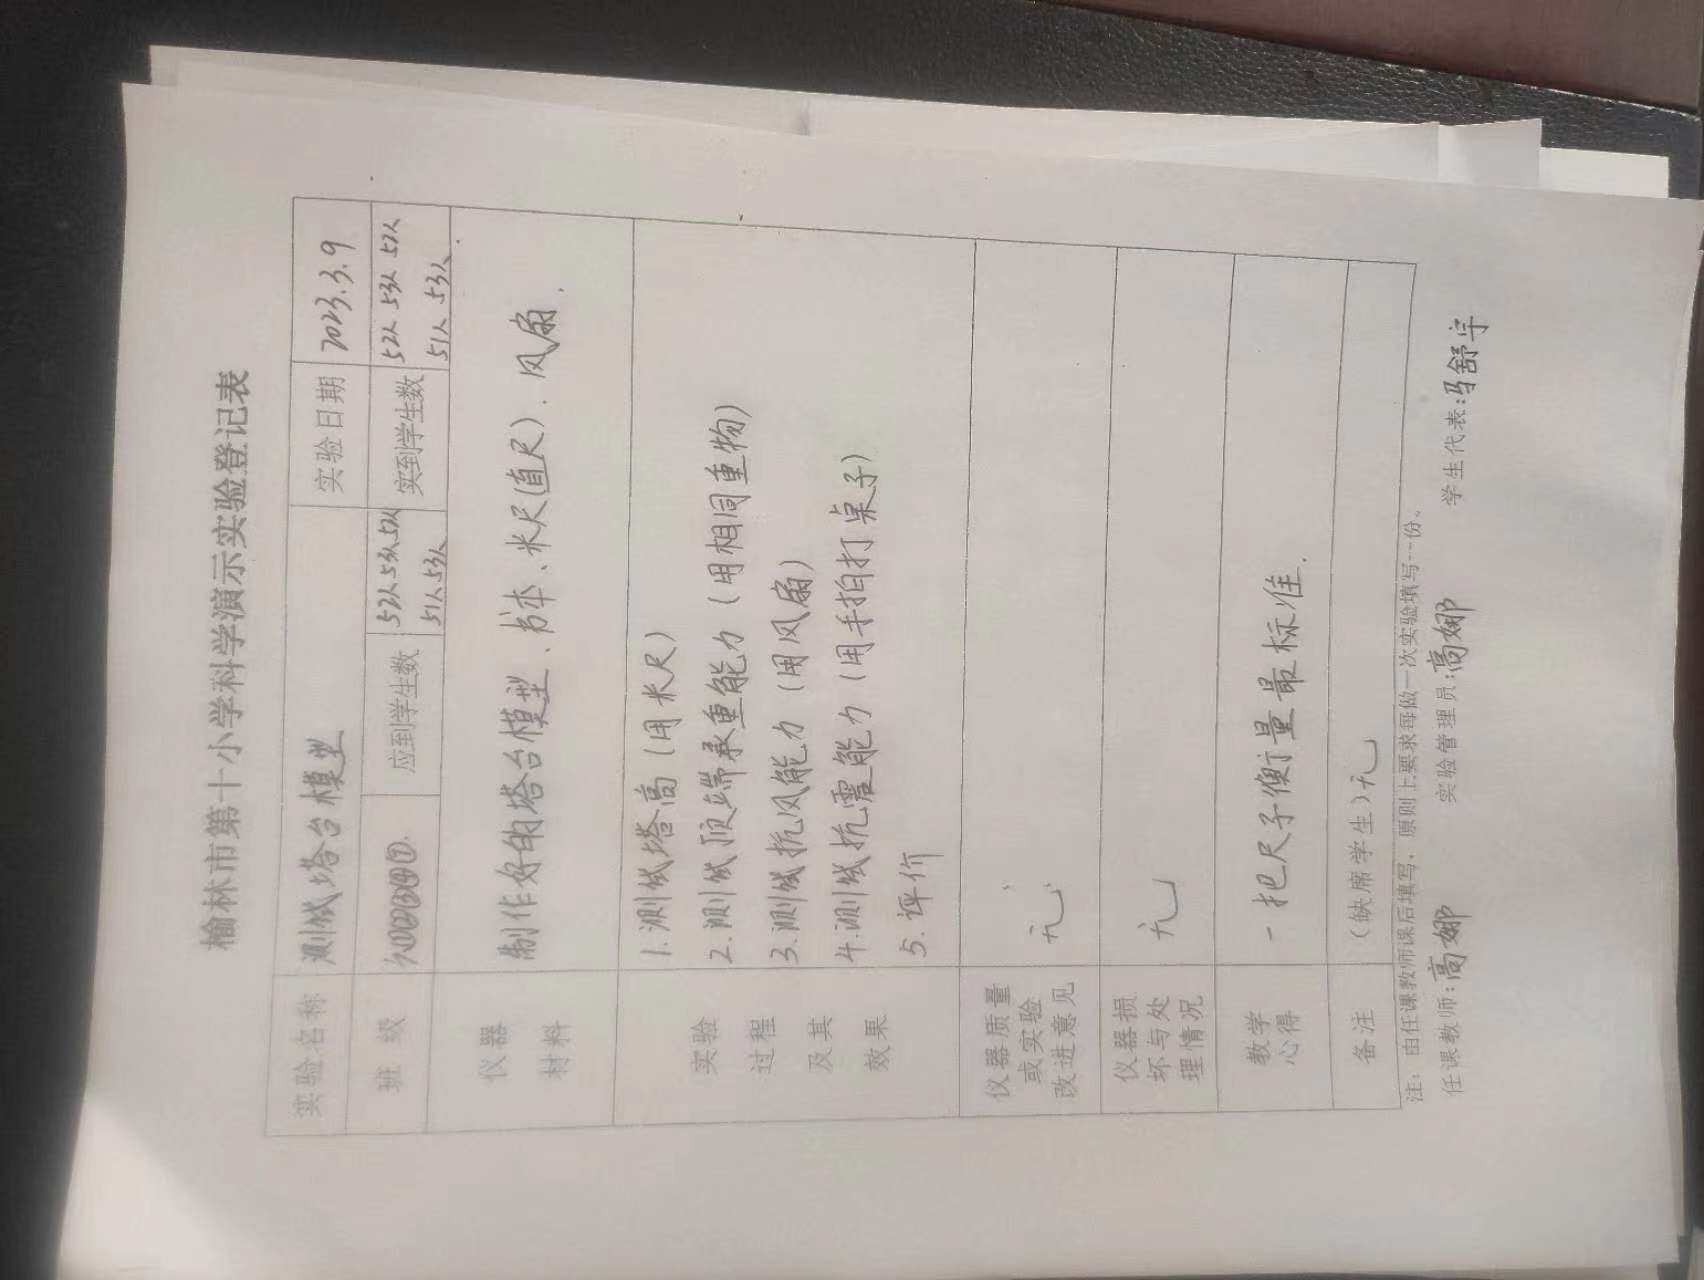 榆林市第十小学科学演示实验登记表
实验名称 测试塔台模型 实验日期 2023.3.9
班 级 应到学生数 52人 53人 52人 实到学生数 52人 53人 52人
51人 53人 51人 53人
仪器
材料
制作好的塔台模型、书本、米尺(直尺)、风扇.
实验
过程
及其
效果
1.测试塔高(用米尺)
2.测试顶端承重能力(用相同重物)
3.测试抗风能力(用风扇)
4.测试抗震能力(用手拍打桌子)
5.评价
仪器质量
或实验
改进意见
无
仪器损
坏与处
理情况
无
教学
心得
一把尺子衡量最标准.
备注 (缺席学生)无
注：由任课教师课后填写，原则上要求每做一次实验填写一份。
任课教师：高娜 实验管理员：高娜 学生代表：马舒宇